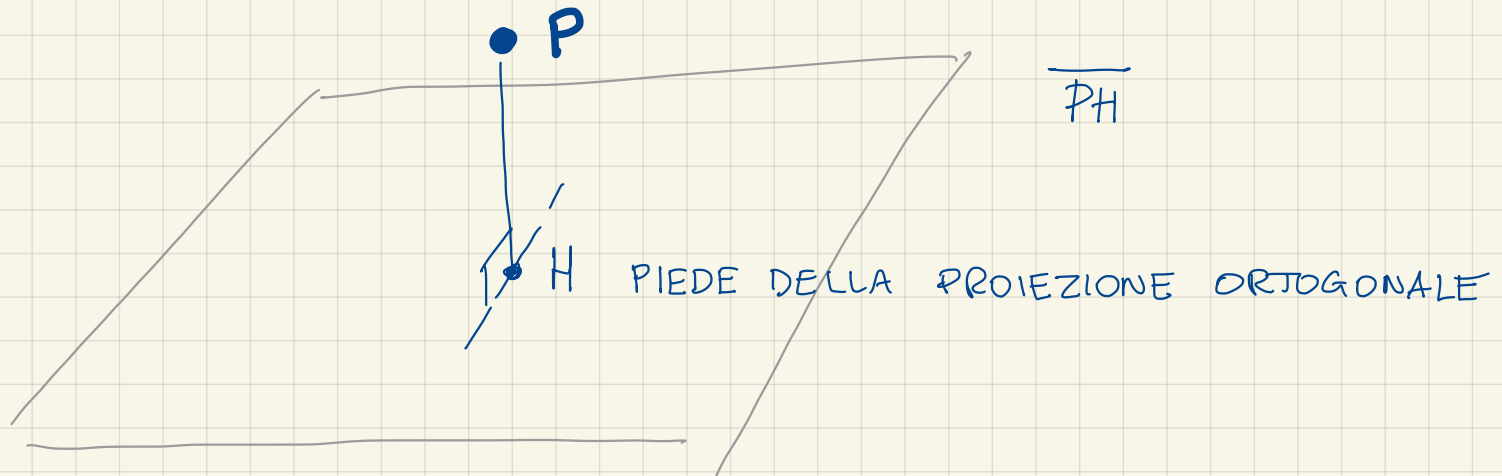 P
P̅H̅
H PIEDE DELLA PROIEZIONE ORTOGONALE